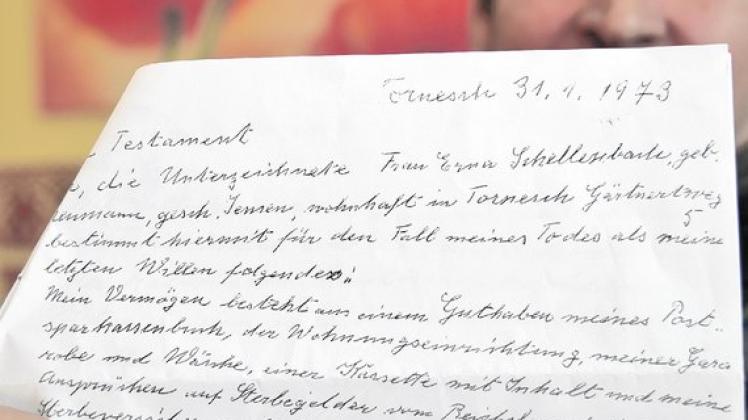 Tornesch 31.1.1973
Testament
, die Unterzeichnete Frau Erna Schellenbach, geb.
mann, gesch. Jensen, wohnhaft in Tornesch Gärtnerweg
5
bestimmt hiermit für den Fall meines Todes als meine
letzten Willen folgendes:
Mein Vermögen besteht aus einem Guthaben meines Post-
sparkassenbuch, der Wohnungseinrichtung, meiner Gara
robe und Wäsche, einer Kassette mit Inhalt und meine
Ansprüchen auf Sterbegelder vom